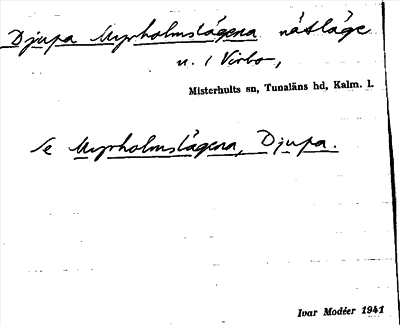 Djupa Myrholmslägena nätläge
u. / Virbo,
Misterhults sn, Tunaläns hd, Kalm. l.
Se Myrholmslägena, Djupa.
Ivar Modéer 1941